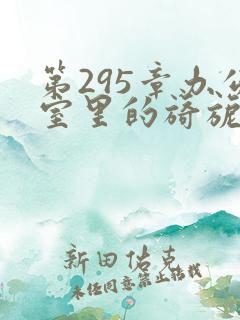 第295章办公
室里的旖旎
新田佑克
未经同意禁止转载